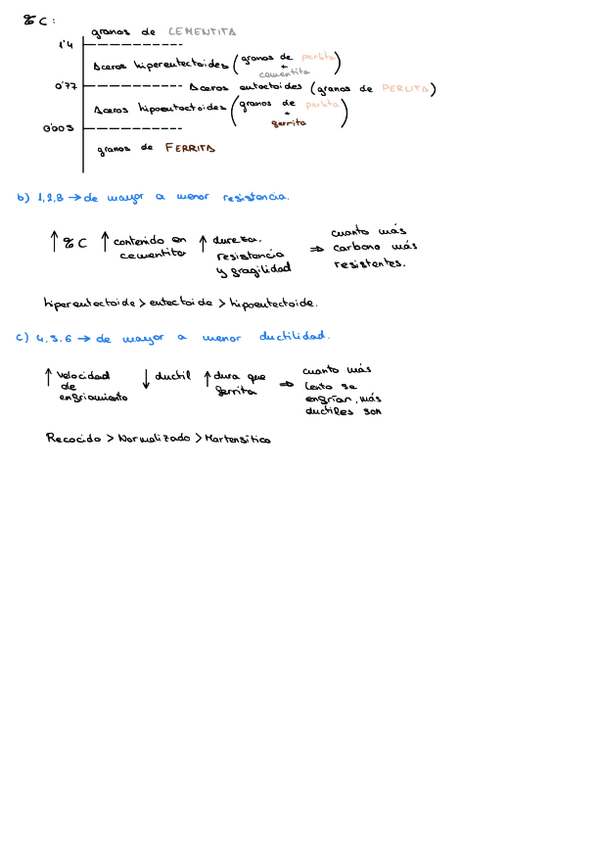 % C:
granos de CEMENTITA
1'4
Aceros hipereutectoides (granos de perlita + cementita)
0'77 Aceros eutectoides (granos de PERLITA)
Aceros hipoeutectoides (granos de perlita + ferrita)
0'005
granos de FERRITA
b) 1,2,3 → de mayor a menor resistencia.
↑ % C ↑ contenido en cementita ↑ dureza, resistencia y fragilidad ⇒ cuanto más carbono más resistentes.
hipereutectoide > eutectoide > hipoeutectoide.
c) 4,5,6 → de mayor a menor ductilidad.
↑ velocidad de enfriamiento ↓ ductil ↑ dura que ferrita ⇒ cuanto más lento se enfrían, más ductiles son
Recocido > Normalizado > Martensítico